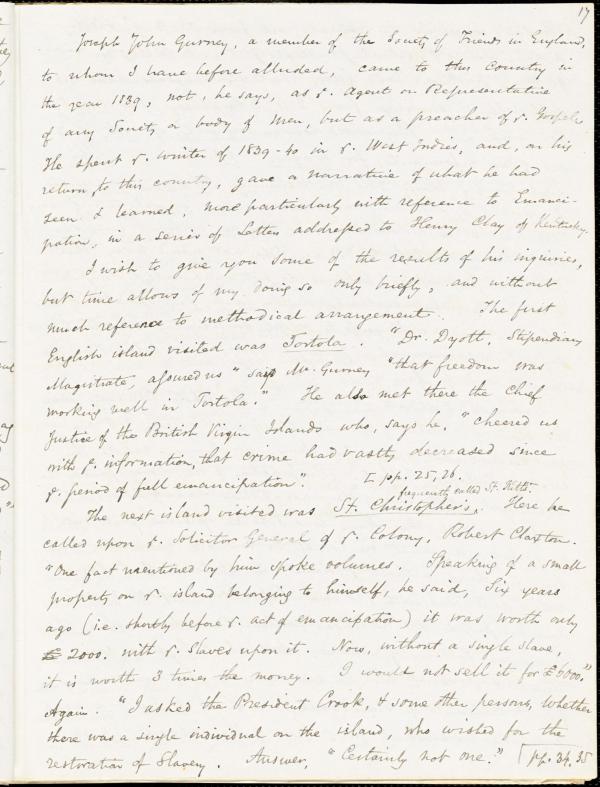 17
Joseph John Gurney, a member of the Society of Friends in England,
to whom I have before alluded, came to this country in
the year 1839, not, he says, as ye. agent or Representative
of any Society or body of men, but as a preacher of ye. Gospel.
He spent ye. winter of 1839-40 in ye. West Indies, and, on his
return to this country, gave a narrative of what he had
seen & learned, more particularly with reference to Emanci-
pation, in a series of Letters addressed to Henry Clay of Kentucky.
I wish to give you some of the results of his inquiries,
but time allows of my doing so only briefly, and without
much reference to methodical arrangement. The first
English island visited was Tortola. "Dr. Dyott, Stipendiary
Magistrate, assured us" says Mr. Gurney "that freedom was
working well in Tortola." He also met there the Chief
Justice of the British Virgin Islands who, says he, "cheered us
with ye. information, that crime had vastly decreased since
ye. period of full emancipation". [pp. 25, 26.
frequently called St. Kitts.
The next island visited was St. Christopher's,. Here he
called upon ye. Solicitor General of ye. Colony, Robert Claxton.
"One fact mentioned by him spoke volumes. Speaking of a small
property on ye. island belonging to himself, he said, Six years
ago (i.e. shortly before ye. act of emancipation) it was worth only
£ 2000. with ye. Slaves upon it. Now, without a single slave,
it is worth 3 times the money. I would not sell it for £6000."
Again. "I asked the President Crook, & some other persons, whether
there was a single individual on the island, who wished for the
restoration of Slavery. Answer, "Certainly not one." [pp. 34, 35